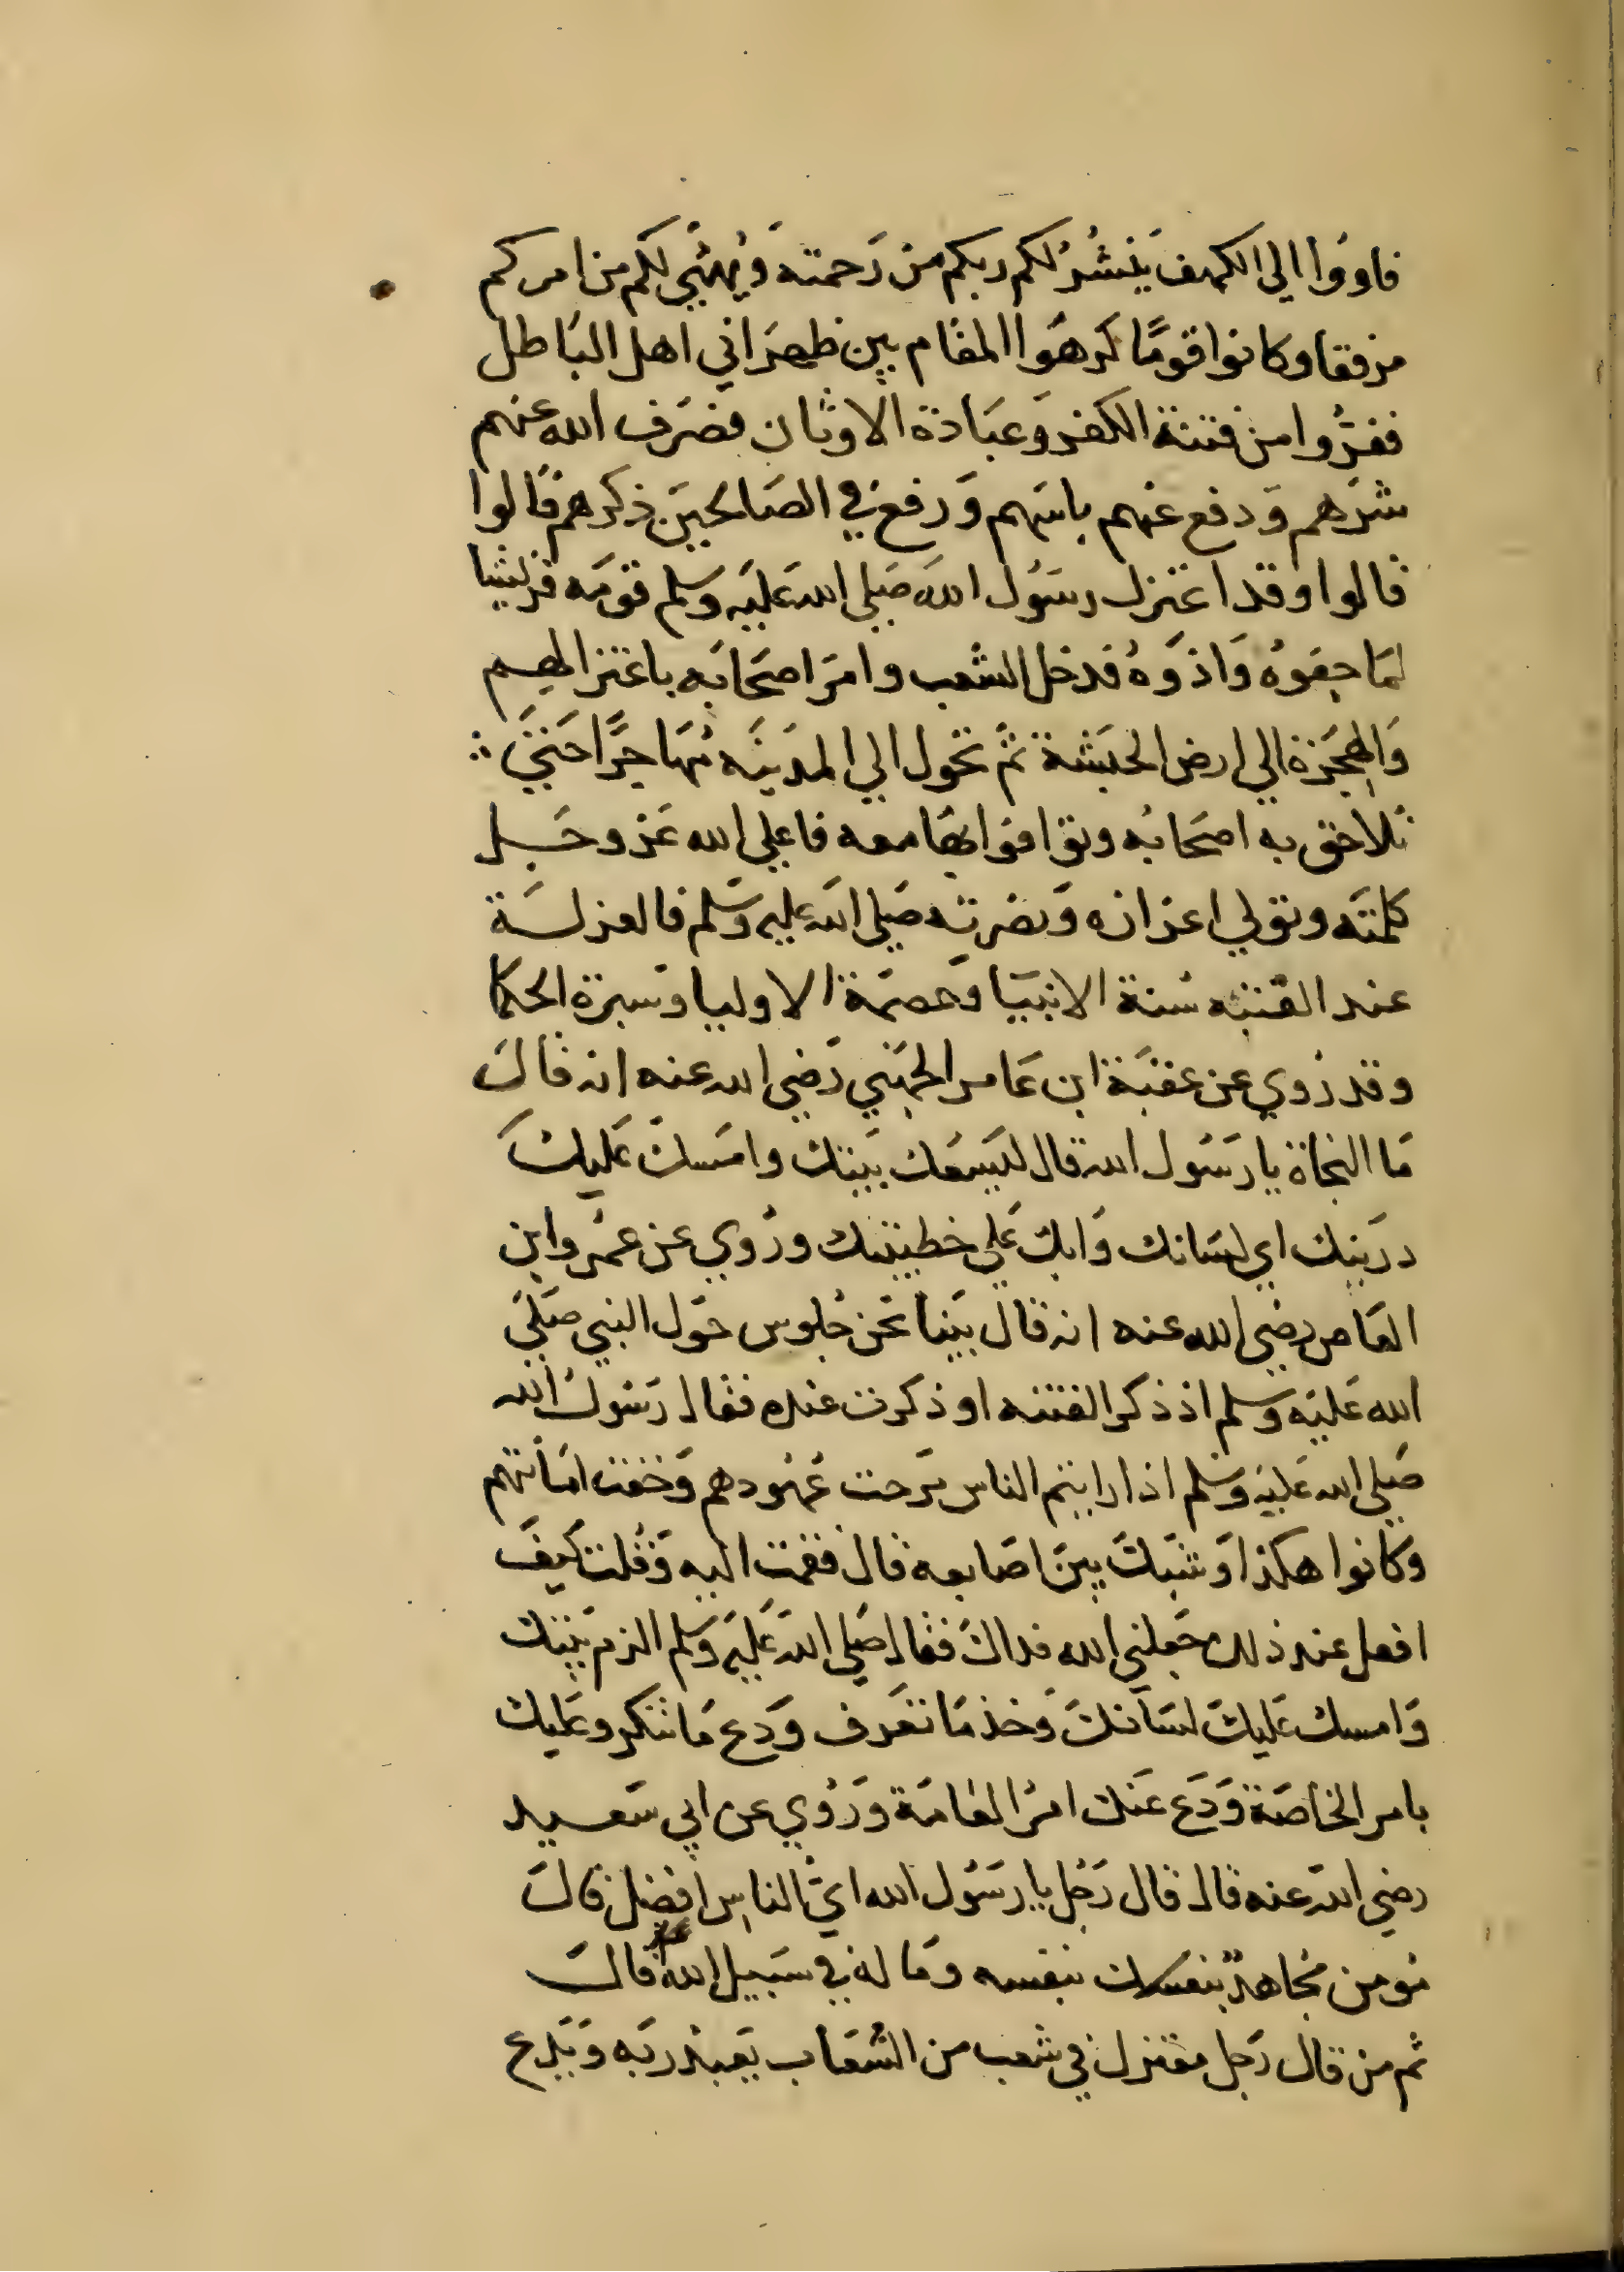 فاووا الي الكهف ينشُرْ لكم ربكم من رَحمته وَيُهيّي لكم من امركم
مرفقا وكانوا قومًا كرهَوا المقام بين ظهرَاني اهل البَاطل
ففرّوا من فتنة الكفر وَعبَادة الاوثان فصَرف الله عنهم
شرَهم وَدفع عنهم باسَهم وَرفع في الصَالحين ذكرهم قالوا
قالوا وقد اعتزل رسَول الله صَلي الله عَليَه وسَلم قومَه قريشا
لمَا جفوهُ وَاذوَهُ فدخل الشعب وامَر اصحَابَه باعتزالهم
وَالهجَرة الي ارض الحبَشة ثمّ تحَول الي المدَينَه مُهَاجرًا حَتيَ ∴
تلاحق به اصحَابُه وتوَافوا بهَا معه فاعلي الله عَز وجَل
كلمتَه وتوَلي اعزازه وَنصرته صَلي الله عليه وَسَلم فالعزلَة
عند الفتنه سُنة الانبيَا وَعصمَة الاوليا وَسيرة الحكما
وقد رُوي عن عقبَة ابن عَامر الجهَني رَضي الله عنه انه قال
مَا النجاة يا رَسَول الله قال ليَسعَك بيَتك وامسَك عَليك
دربَنك اي لسَانك وَابك عَلي خطيئتك ورُوي عن عمَرو ابن
العَاص رضي الله عنه انه قال بيَنا نحَن جُلوس حَول النبي صَلي
الله عَليَه وسَلم اذ ذكر الفتنه او ذكرت عنده فقال رَسَول الله
صَلي الله عَليَه وسَلم اذا رايتم الناس مرَجت عُهوَدهم وَخفت امَانتهم
وكانوا هكذا وَشبَك بينَ اصَابعه قال فقمت اليه وَقلت كيَف
افعل عند ذلك جَعلني الله فداك فقال صَلي الله عَليَه وسَلم الزم بيَتك
وَامسك عَليك لسَانك وَخذ مَا تعَرف وَدع مَا تنكر وعَليك
بامر الخاصَة وَدَع عَنك امرَ العَامَة وَرُوي عن ابي سَعيد
رضي الله عنه قال قال رَجُل يا رَسَول الله ايّ الناس افضل قال
مُومن مُجاهد بنفسك بنفسه وَمَاله في سبَيل الله قال
ثم من قال رَجل معتزل في شعب من الشعَاب يَعبدُ ربَه وَيَدع